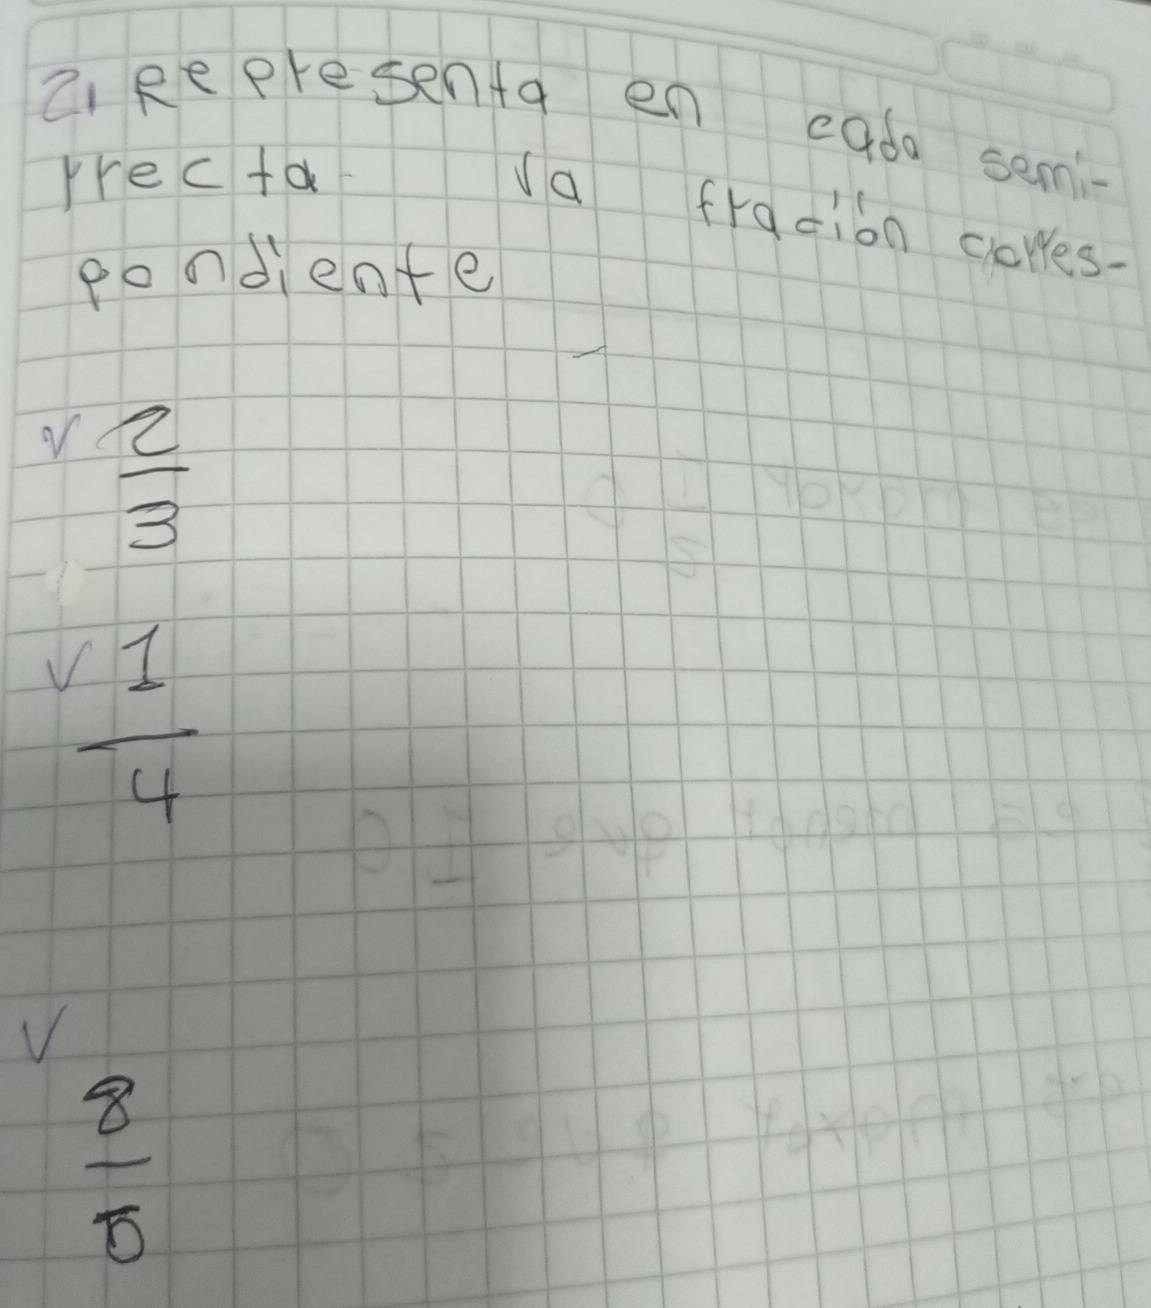 2. Representa en cada semi-
rrecta la fración corres-
pondiente
2
3
1
4
8
5